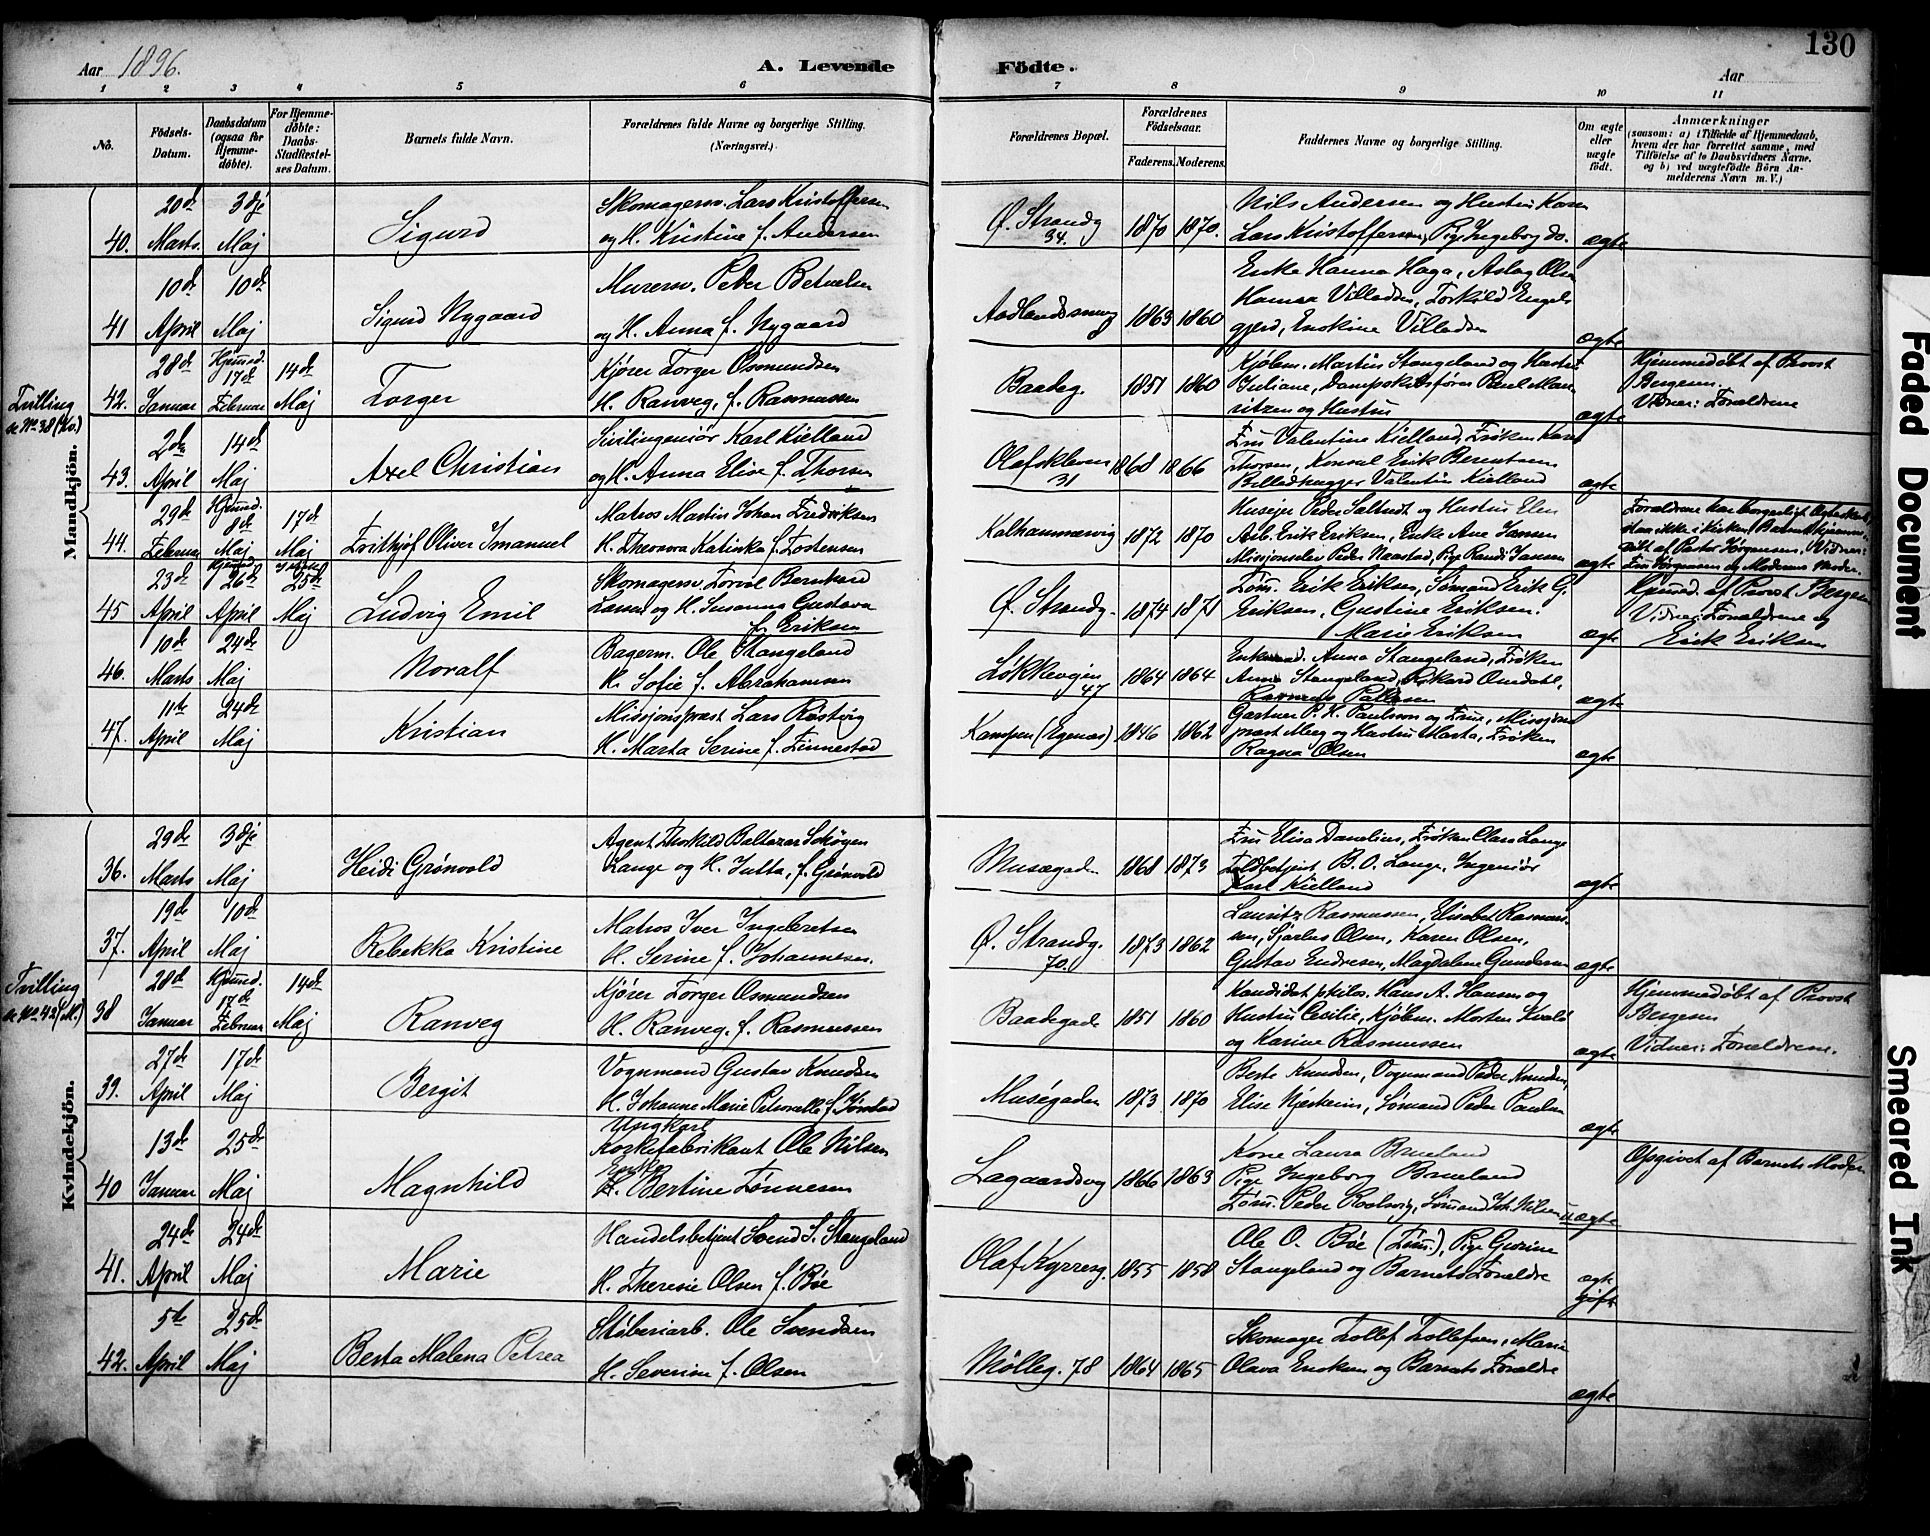 130
Aar 1896.
A. Levende Födte.
Aar
1 2 3 4 5 6 7 8 9 10 11
No.
Födsels-Datum.
Daabsdatum (ogsaa for Hjemme-döbte).
For Hjemme-döbte: Daabs-Stadfæstel-ses Datum.
Barnets fulde Navn.
Forældrenes fulde Navne og borgerlige Stilling.
(Næringsvei.)
Forældrenes Bopæl.
Forældrenes Födselsaar.
Faderens. Moderens.
Faddernes Navne og borgerlige Stilling.
Om ægte eller uægte födt.
Anmærkninger
(saasom: a) i Tilfælde af Hjemmedaab,
hvem der har forrettet samme, med
Tilföielse af to Daabsvidners Navne.
og b) ved uægtefödte Börn An-
melderens Navn m. V.)
Mandkjön.
40. 20de Marts. 3dje Maj
Sigurd
Skomagersv. Lars Kristoffersen
og H. Kristine f. Andersen
Ø. Strandg 34. 1870 1870.
Nils Andersen og Hustru Karen
Lars Kristoffersen, Pige Ingeborg do.
ægte
41 10de April 10de Maj
Sigurd Nygaard
Murersv. Peder Betuelsen
og H. Anna f. Nygaard
Aadlandssmug 1863 1860
Enke Hanna Haga, Aslag Olsen
Hansa Villadsen, Torkild Engels
gjerd, Enokine Villadsen
ægte
Tvilling
se No 38 (Kv.)
42. 28de Januar Hjemmed. 17de Februar 14de Maj
Torger
Kjører Torger Osmundsen
H. Ranveg, f. Rasmussen
Baadeg. 1851 1860
Kjøbm. Martin Stangeland og Hustru
Juliane, Dampskibsfører Parel Mau
ritzen og Hustru
ægte
Hjemmedøbt af Provst
Bergesen.
Vidner: Forældrene
43. 2den April 14de Maj
Axel Christian
Sivilingeniør Karl Kielland
og H. Anna Elise f. Thorsen
Olafskleven 31 1868 1866
Fru Valentine Kielland, Frøken Kara
Thorsen, Konsul Erik Berentsen
Billedhugger Valentin Kielland
ægte
44. 29de Februar Hjemmed. 8de Maj 17de Maj
Frithjof Oliver Imanuel
Matros Martin Johan Fredriksen
H. Theodora Katinka f. Torstensen
Kalhammervig 1872 1870
Husejer Peder Salthudt og Hustru Elen
Arb. Erik Eriksen, Enke Ane Jansen
Missjonselev Peder Naastad, Pige Randi Jansen
ægte
Forældrene har borgerligt Ægteskab,
thar ikke i Kirken. Barnet hjemme-
døbt af Pastor Jørgensen, Vidner:
Fru Jørgensen og Moderens Moder.
45 23de April Hjemmed. 26de April 25de Maj
Ludvig Emil
Skomagersv Torvil Bernhard
Larsen og H. Susanna Gustava
f. Eriksen
Ø. Strandg. 1874 1871
Tøm. Erik Eriksen, Sømand Erik G.
Eriksen, Gustine Eriksen.
Marie Eriksen
ægte
Hjemmed. af Provst Bergesen
Vidner: Forældrene og
Erick Eriksen
46. 10de Marts 24de Maj
Noralf
Bagerm. Ole Stangeland
H. Sofie f. Abrahamsen
Løkkevegen 47 1864 1864
Enkemad. Anna Stangeland, Frøken
Anna Stangeland, Rikard Omdahl,
Rasmus Paulsen
ægte
47. 11te April 24de Maj
Kristian
Missjonsprest Lars Røstvig
H. Marta Serine f. Finnestad
Kampen (Egenæs) 1846 1862
Gartner P. H. Paulsson og Frue, Missjons
prest Meeg og Hustru Marta, Frøken
Ragna Olsen
ægte
Kvindekjön.
36. 29de Marts 3dje Maj
Heidi Grønvold
Agent Thorkild Baltazar Schøyen
Lange og H. Jutta, f. Grønvold
Musægaden 1868 1873
Fru Elisa Danelius, Frøken Clara Lange
Toldbetjent B. O. Lange, Ingeniør
Karl Kielland
ægte
37. 19de April 10de Maj
Rebekka Kristine
Matros Iver Ingebretsen
H. Serine f. Johannesen.
Ø. Strandg. 70. 1873 1862
Lauritz Rasmussen, Elisabet Rasmus-
sen, Sjarlus Olsen, Karen Olsen,
Gustav Endresen, Magdalene Gundersen
ægte
Tvilling
se No 42 (M.)
38 28de Januar Hjemmed. 17de Februar 14de Maj
Ranveg
Kjører Torger Osmundsen
H. Ranveg, f. Rasmussen
Baadegade 1851 1860
Kandidat philos. Hans A. Hansen og
Hustru Cecilie, Kjøbm. Morten Kvale
og Karine Rasmussen
ægte
Hjemmedøbt af Provst
Bergesen
Vidner: Forældrene.
39. 27de April 17de Maj
Bergit
Vognmand Gustav Knudsen
H. Johanne Marie Petronelle f. Jønstad
Muségaden 1873 1870
Berte Knudsen, Vognmand Peder Knudsen,
Elise Njerheim, Sømand Peder Paulsen
ægte
40 13de Januar 25de Maj
Magnhild
Ungkarl
Korkefabrikant Ole Nilsen
Enke
H. Bertine Tønnesen
Lagaardsvg 1866 1863
Kone Laura Brueland
Pige Ingeborg Brueland
Tøm. Peder Rostvig, Sømand Joh. Nilsen
uægte
Opgivet af Barnets Moder
41. 24de April 24de Maj
Marie
Handelsbetjent Svend S. Stangeland
H. Theresie Olsen f. Bøe
Olaf Kyrresg. 1855 1858
Ole O. Bøe (Tøm.), Pige Gurine
Stangeland og Barnets Forældre
ægte
gift
42. 5te April 25de Maj
Berta Malena Petrea
Støberiarb. Ole Svendsen
H. Severine f. Olsen
Mølleg. 78 1864 1865
Skomager Tollef Tollefsen, Marie
Olava Enoksen og Barnets Forældre
ægte
Faded Document
Smeared Ink